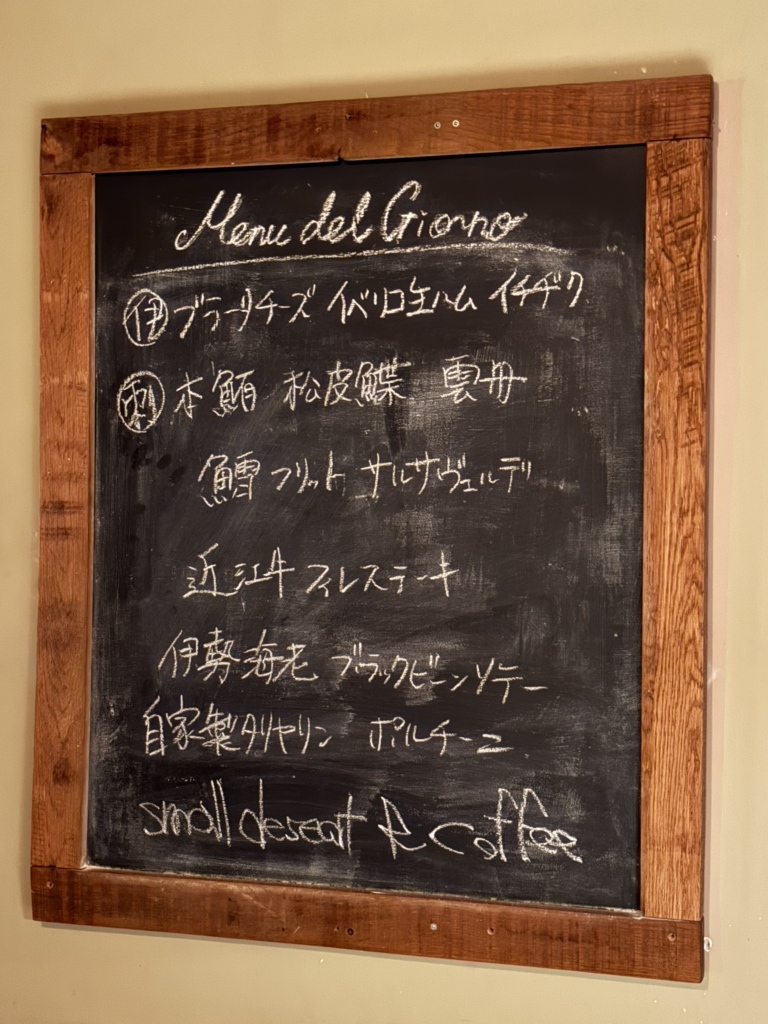 Menu del Giorno
伊 ブラータチーズ イベリコ生ハム イチヂク
刺 本鮪 松皮鰈 雲丹
鱈フリット サルサヴェルデ
近江牛 フィレステーキ
伊勢海老 ブラックビーンソテー
自家製タリヤリン ポルチーニ
small deseart & coffee